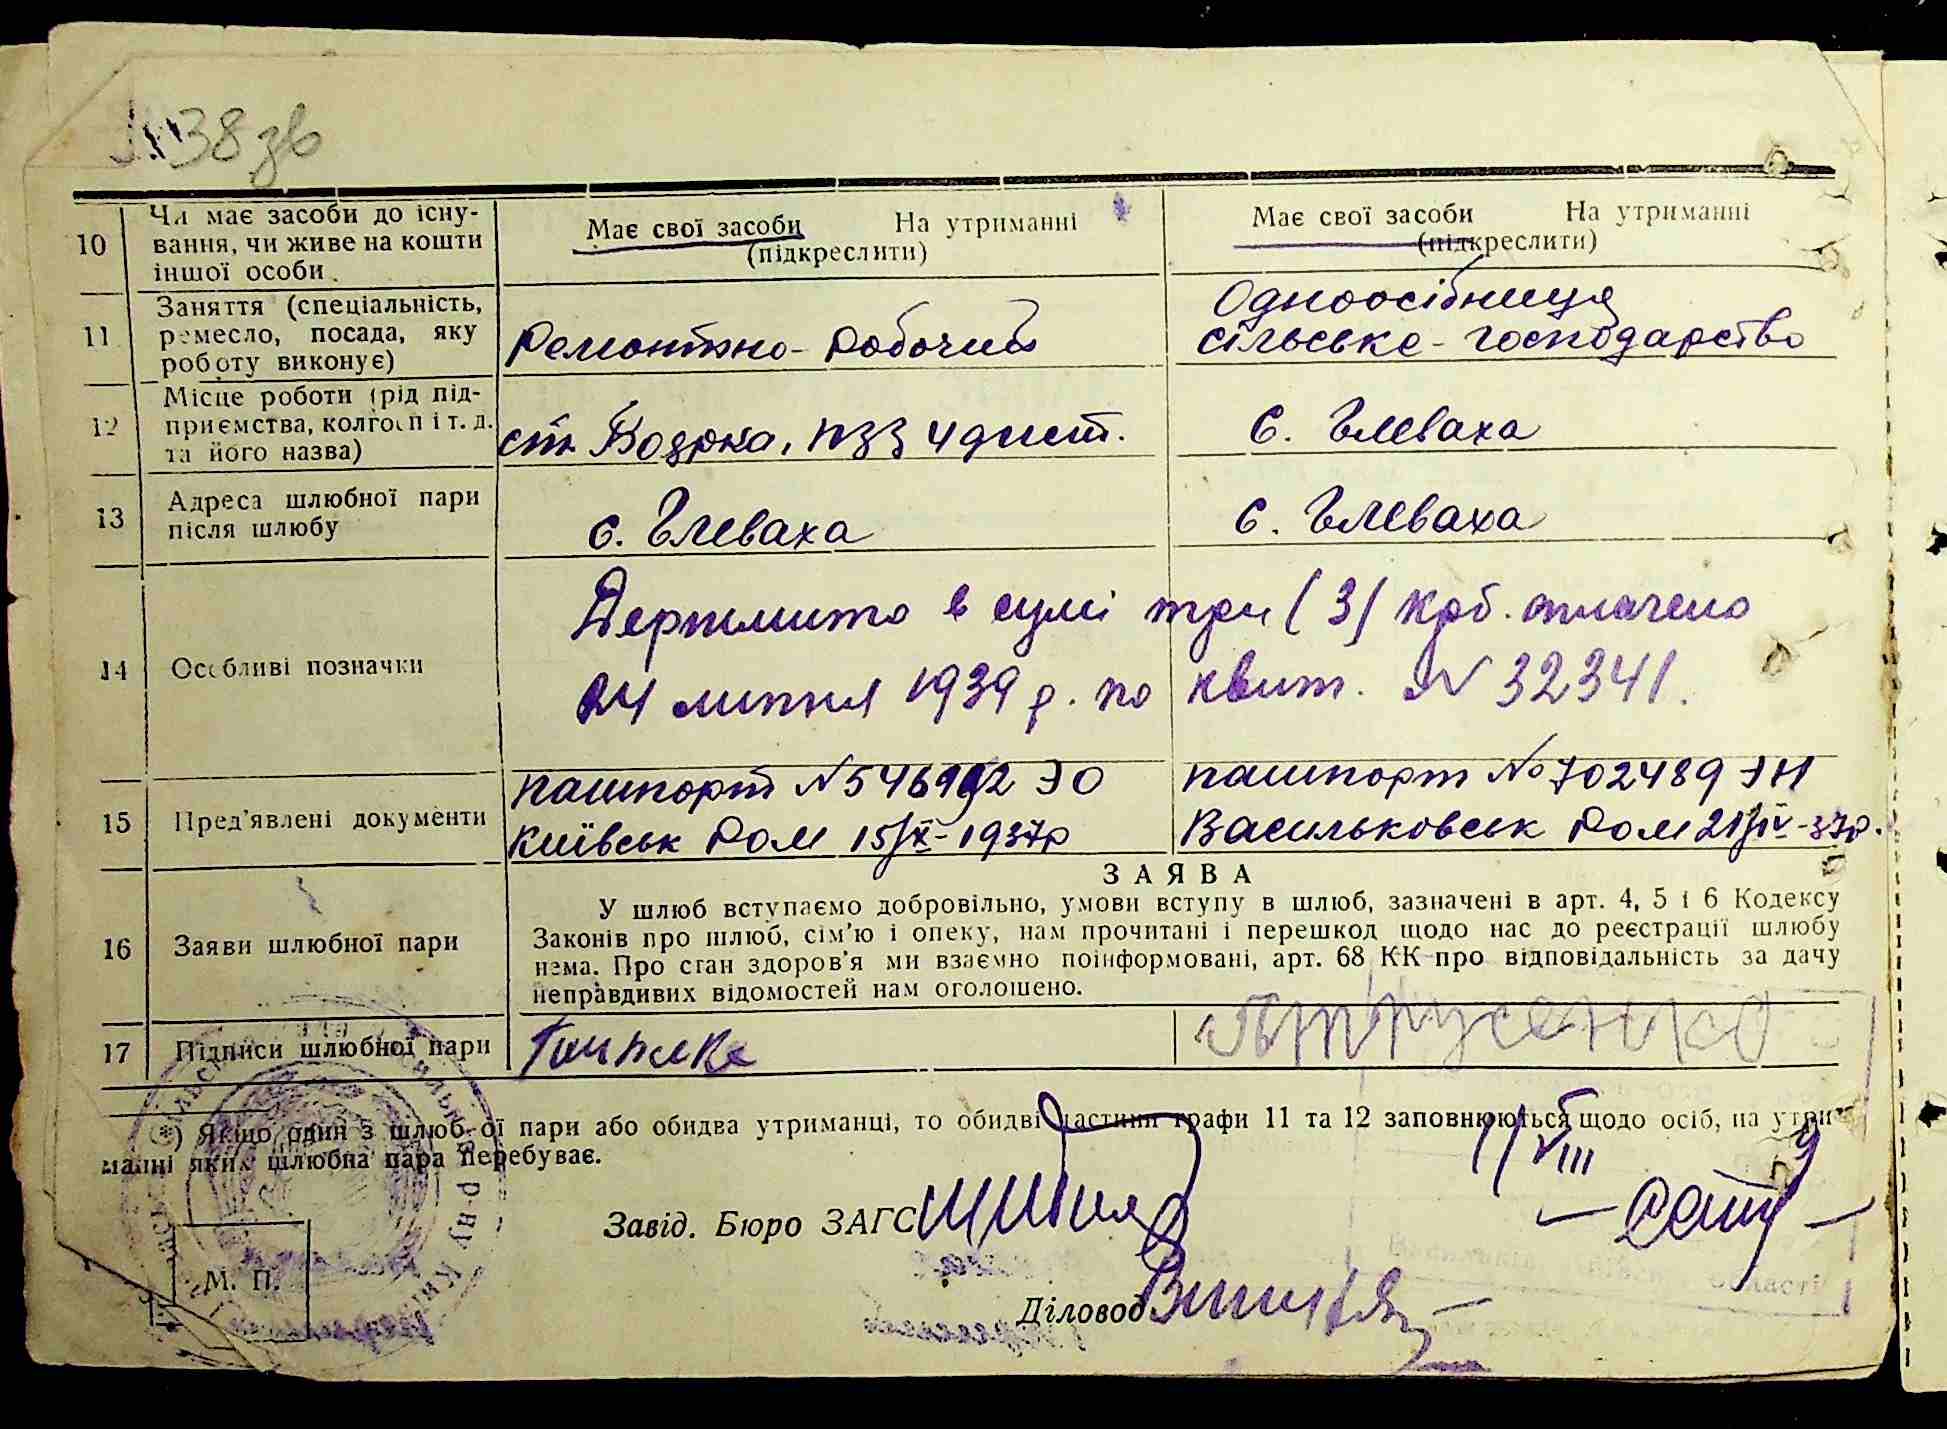 38 зв
10 Чи має засоби до існу-
вання, чи живе на кошти
іншої особи.
Має свої засоби На утриманні
(підкреслити)
Має свої засоби На утриманні
(підкреслити)
11 Заняття (спеціальність,
ремесло, посада, яку
роботу виконує)
Ремонтно-робочий
Одноосібниця
сільське-господарство
12 Місце роботи (рід під-
приємства, колгосп і т. д.
та його назва)
ст. Боярка, ПЗЗ 4 дист.
с. Глеваха
13 Адреса шлюбної пари
після шлюбу
с. Глеваха
с. Глеваха
14 Особливі позначки
Держмито в сумі три (3) крб. оплачено
24 липня 1939 р. по квит. N 32341.
15 Пред'явлені документи
пашпорт N ЭО
Київськ РОМ 15/X-1937р
пашпорт No 702489 ЭН
Васильковськ РОМ 21/IV-37р.
16 Заяви шлюбної пари
ЗАЯВА
У шлюб вступаємо добровільно, умови вступу в шлюб, зазначені в арт. 4, 5 і 6 Кодексу
Законів про шлюб, сім'ю і опеку, нам прочитані і перешкод щодо нас до реєстрації шлюбу
нема. Про стан здоров'я ми взаємно поінформовані, арт. 68 КК про відповідальність за дачу
неправдивих відомостей нам оголошено.
17 Підписи шлюбної пари
*) Якщо один з шлюбної пари або обидва утриманці, то обидві частини графи 11 та 12 заповнюються щодо осіб, на утри-
манні яких шлюбна пара перебуває.
11/VIII
Завід. Бюро ЗАГС
М. П.
Діловод
області